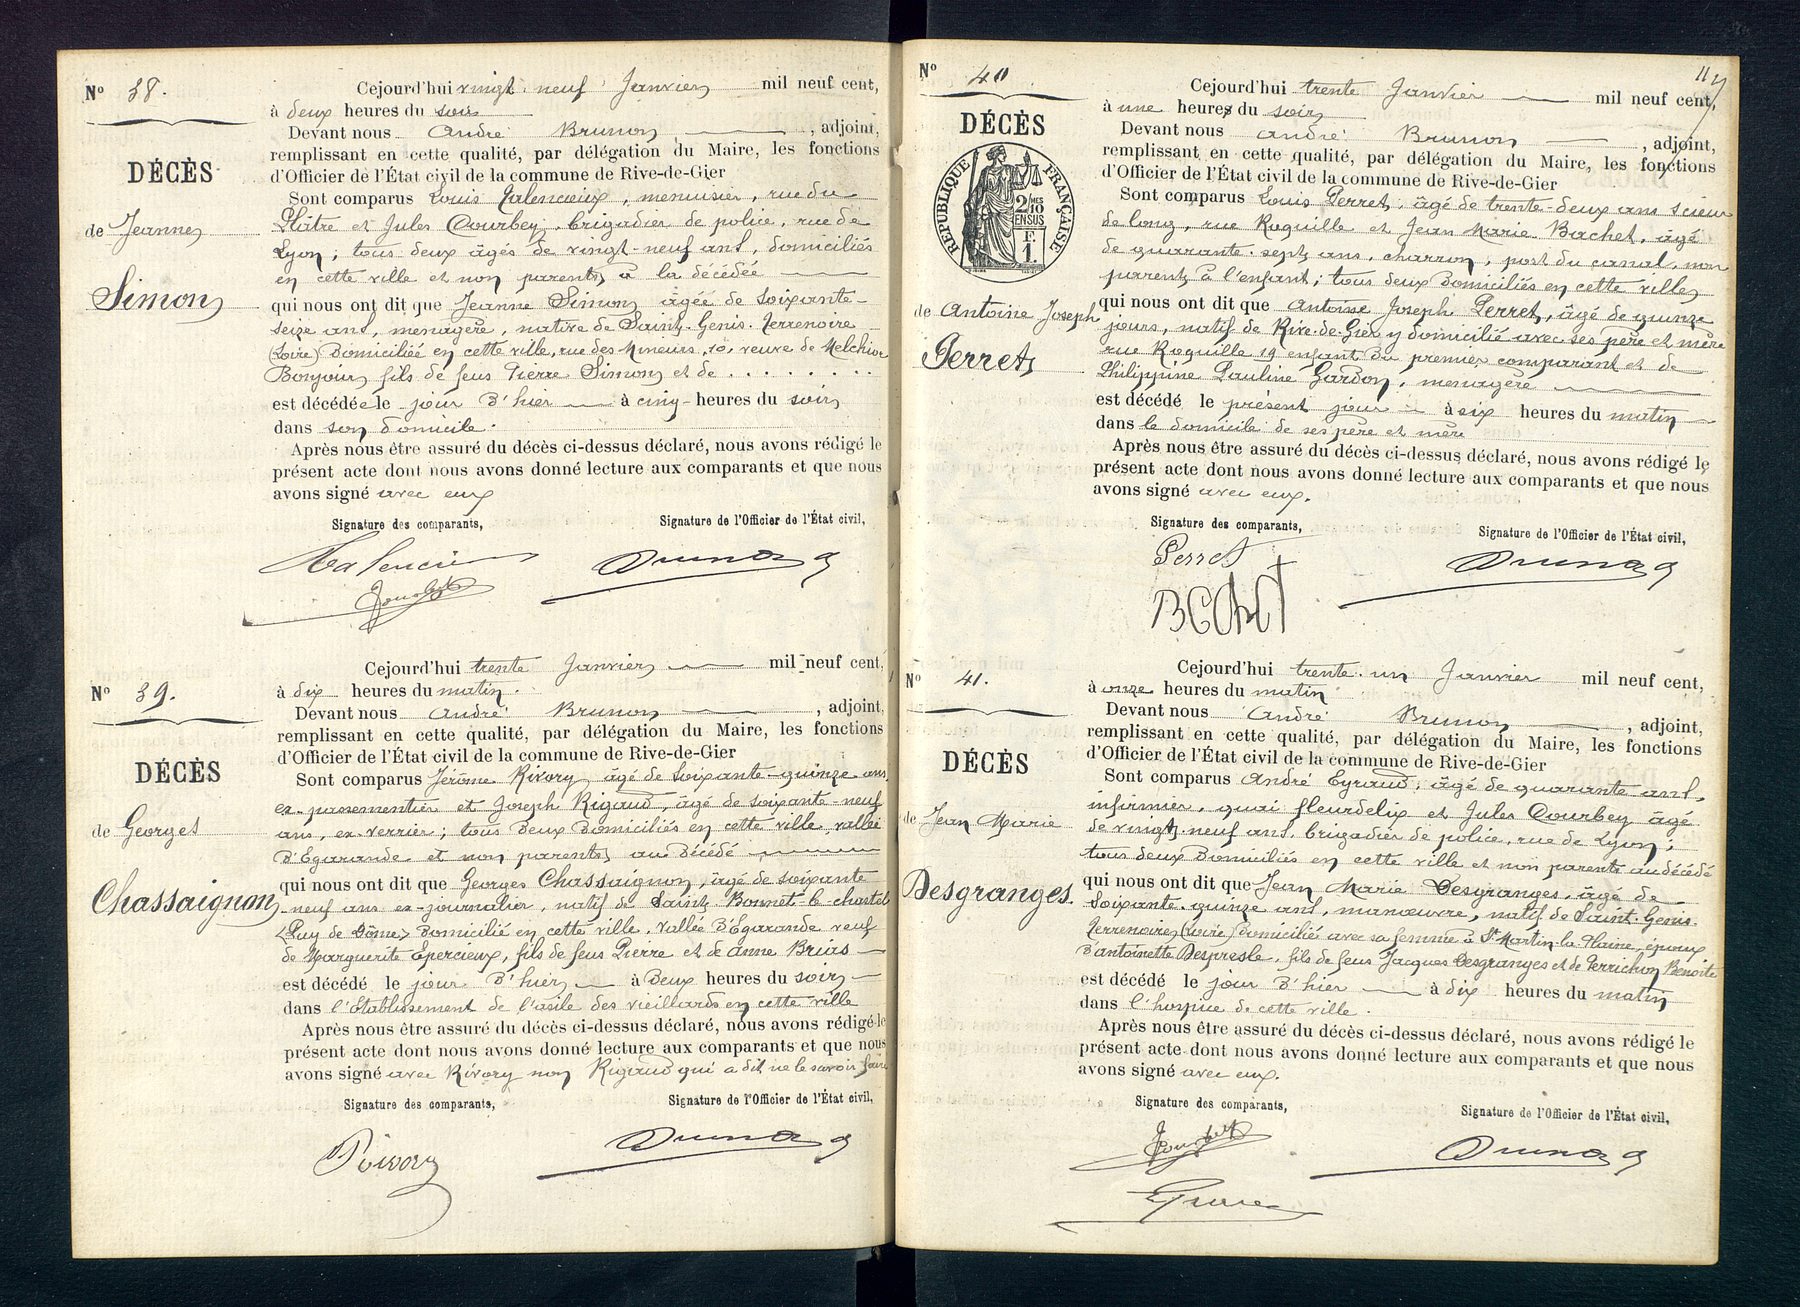 Nº 38.
DÉCÈS
de Jeanne
Simon
Cejourd'hui vingt neuf Janvier mil neuf cent,
à deux heures du soir
Devant nous André Brunon, adjoint,
remplissant en cette qualité, par délégation du Maire, les fonctions
d'Officier de l'État civil de la commune de Rive-de-Gier
Sont comparus Louis Valencieux, menuisier, rue du
Plâtre et Jules Courbey, brigadier de police, rue de
Lyon; tous deux âgés de vingt-neuf ans, domiciliés
en cette ville et non parents à la décédée
qui nous ont dit que Jeanne Simon âgée de soixante-
seize ans, menagère, native de Saint-Genis-Terrenoire
(Loire) domiciliée en cette ville, rue des Mineurs, 10, veuve de Melchior
Bonjour fils de feus Pierre Simon et de . . . . . . . .
est décédée le jour d'hier à cinq heures du soir
dans son domicile.
Après nous être assuré du décès ci-dessus déclaré, nous avons rédigé le
présent acte dont nous avons donné lecture aux comparants et que nous
avons signé avec eux
Signature des comparants,
Signature de l'Officier de l'État civil,
Valencieu
Brunon
Courbey
Nº 39.
DÉCÈS
de Georges
Chassaignon
Cejourd'hui trente Janvier mil neuf cent,
à dix heures du matin.
Devant nous André Brunon, adjoint,
remplissant en cette qualité, par délégation du Maire, les fonctions
d'Officier de l'État civil de la commune de Rive-de-Gier
Sont comparus Jérôme Rivory âgé de soixante-quinze ans
ex-passementier et Joseph Rigaud, âgé de soixante-neuf
ans, ex-verrier; tous deux domiciliés en cette ville vallée
d'Egarande et non parents au décédé
qui nous ont dit que Georges Chassaignon, âgé de soixante
neuf ans ex-journalier, natif de Saint-Bonnet-le-chastel
(Puy de Dôme) domicilié en cette ville, vallée d'Egarande veuf
de Marguerite Epercieux, fils de feus Pierre et de Anne Brias
est décédé le jour d'hier à deux heures du soir
dans l'établissement de l'asile des vieillards en cette ville
Après nous être assuré du décès ci-dessus déclaré, nous avons rédigé le
présent acte dont nous avons donné lecture aux comparants et que nous
avons signé avec Rivory non Rigaud qui a dit ne le savoir faire
Signature des comparants,
Signature de l'Officier de l'État civil,
Rivory
Brunon
Nº 40
DÉCÈS
RÉPUBLIQUE FRANÇAISE
2 MES 10
EN SUS
F.
1.
de Antoine Joseph
Perret
11
Cejourd'hui trente Janvier mil neuf cent,
à une heures du soir
Devant nous André Brunon, adjoint,
remplissant en cette qualité, par délégation du Maire, les fonctions
d'Officier de l'État civil de la commune de Rive-de-Gier
Sont comparus Louis Perret, âgé de trente-deux ans scieur
de long, rue Roquille et Jean Marie Bachet, âgé
de quarante-sept ans, charron, port du canal, non
parents à l'enfant; tous deux domiciliés en cette ville
qui nous ont dit que Antoine Joseph Perret, âgé de quinze
jours, natif de Rive-de-Gier y domicilié avec ses père et mère
rue Roquille 19 enfant du premier comparant et de
Philippine Pauline Gardon, menagère
est décédé le présent jour à six heures du matin
dans le domicile de ses père et mère
Après nous être assuré du décès ci-dessus déclaré, nous avons rédigé le
présent acte dont nous avons donné lecture aux comparants et que nous
avons signé avec eux.
Signature des comparants,
Signature de l'Officier de l'État civil,
Perret
Brunon
Nº 41.
DÉCÈS
de Jean Marie
Desgranges.
Cejourd'hui trente-un Janvier mil neuf cent,
à onze heures du matin
Devant nous André Brunon, adjoint,
remplissant en cette qualité, par délégation du Maire, les fonctions
d'Officier de l'État civil de la commune de Rive-de-Gier
Sont comparus André Eyraud, âgé de quarante ans,
infirmier, quai fleurdelix et Jules Courbey âgé
de vingt-neuf ans, brigadier de police, rue de Lyon;
tous deux domiciliés en cette ville et non parents au décédé
qui nous ont dit que Jean Marie Desgranges, âgé de
soixante-quinze ans, manœuvre, natif de Saint-Genis-
Terrenoire, (Loire) domicilié avec sa femme à St Martin-la-Plaine, époux
d'Antoinette Despresle, fils de feus Jacques Desgranges et de Perrichon Benoite
est décédé le jour d'hier à dix heures du matin
dans l'hospice de cette ville.
Après nous être assuré du décès ci-dessus déclaré, nous avons rédigé le
présent acte dont nous avons donné lecture aux comparants et que nous
avons signé avec eux.
Signature des comparants,
Signature de l'Officier de l'État civil,
Courbey
Brunon